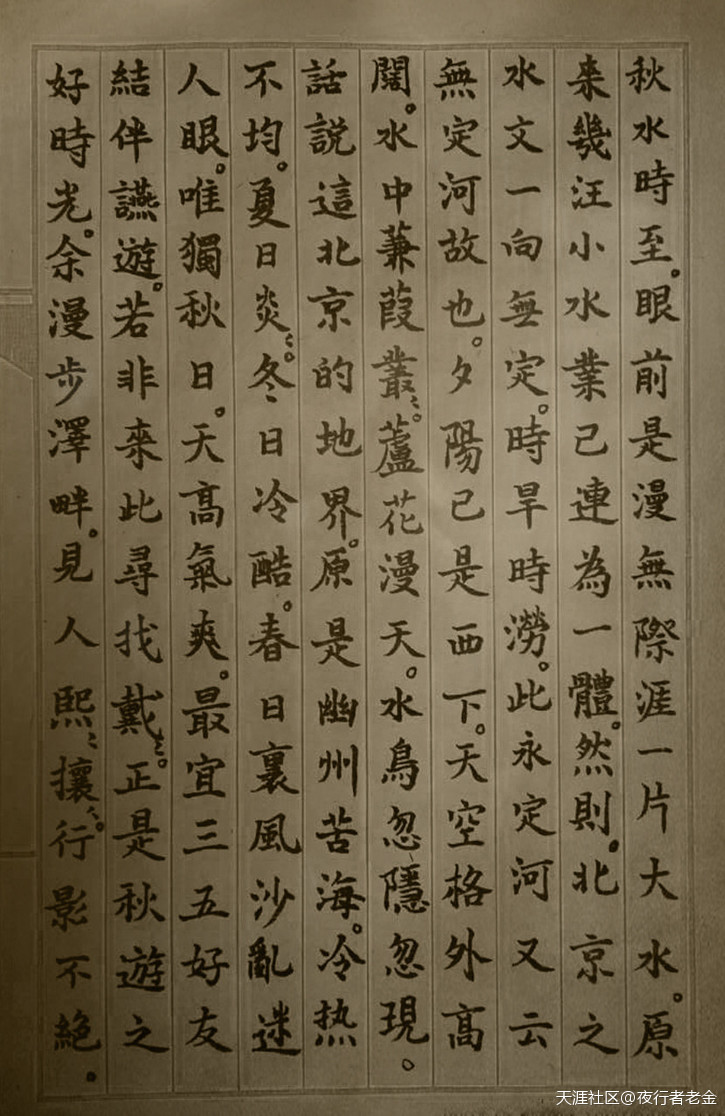 秋水時至。眼前是漫無際涯一片大水。原
来幾汪小水業已連為一體。然則。北京之
水文一向無定。時旱時澇。此永定河又云
無定河故也。夕陽已是西下。天空格外高
闊。水中蒹葭叢〻。蘆花漫天。水鳥忽隱忽現。
話說這北京的地界。原是幽州苦海。冷热
不均。夏日炎〻。冬日冷酷。春日裏風沙亂迷
人眼。唯獨秋日。天高氣爽。最宜三五好友
結伴讌遊。若非來此尋找戴〻。正是秋遊之
好時光。余漫步澤畔。見人熙〻攘〻。行影不絕。
天涯社区@夜行者老金